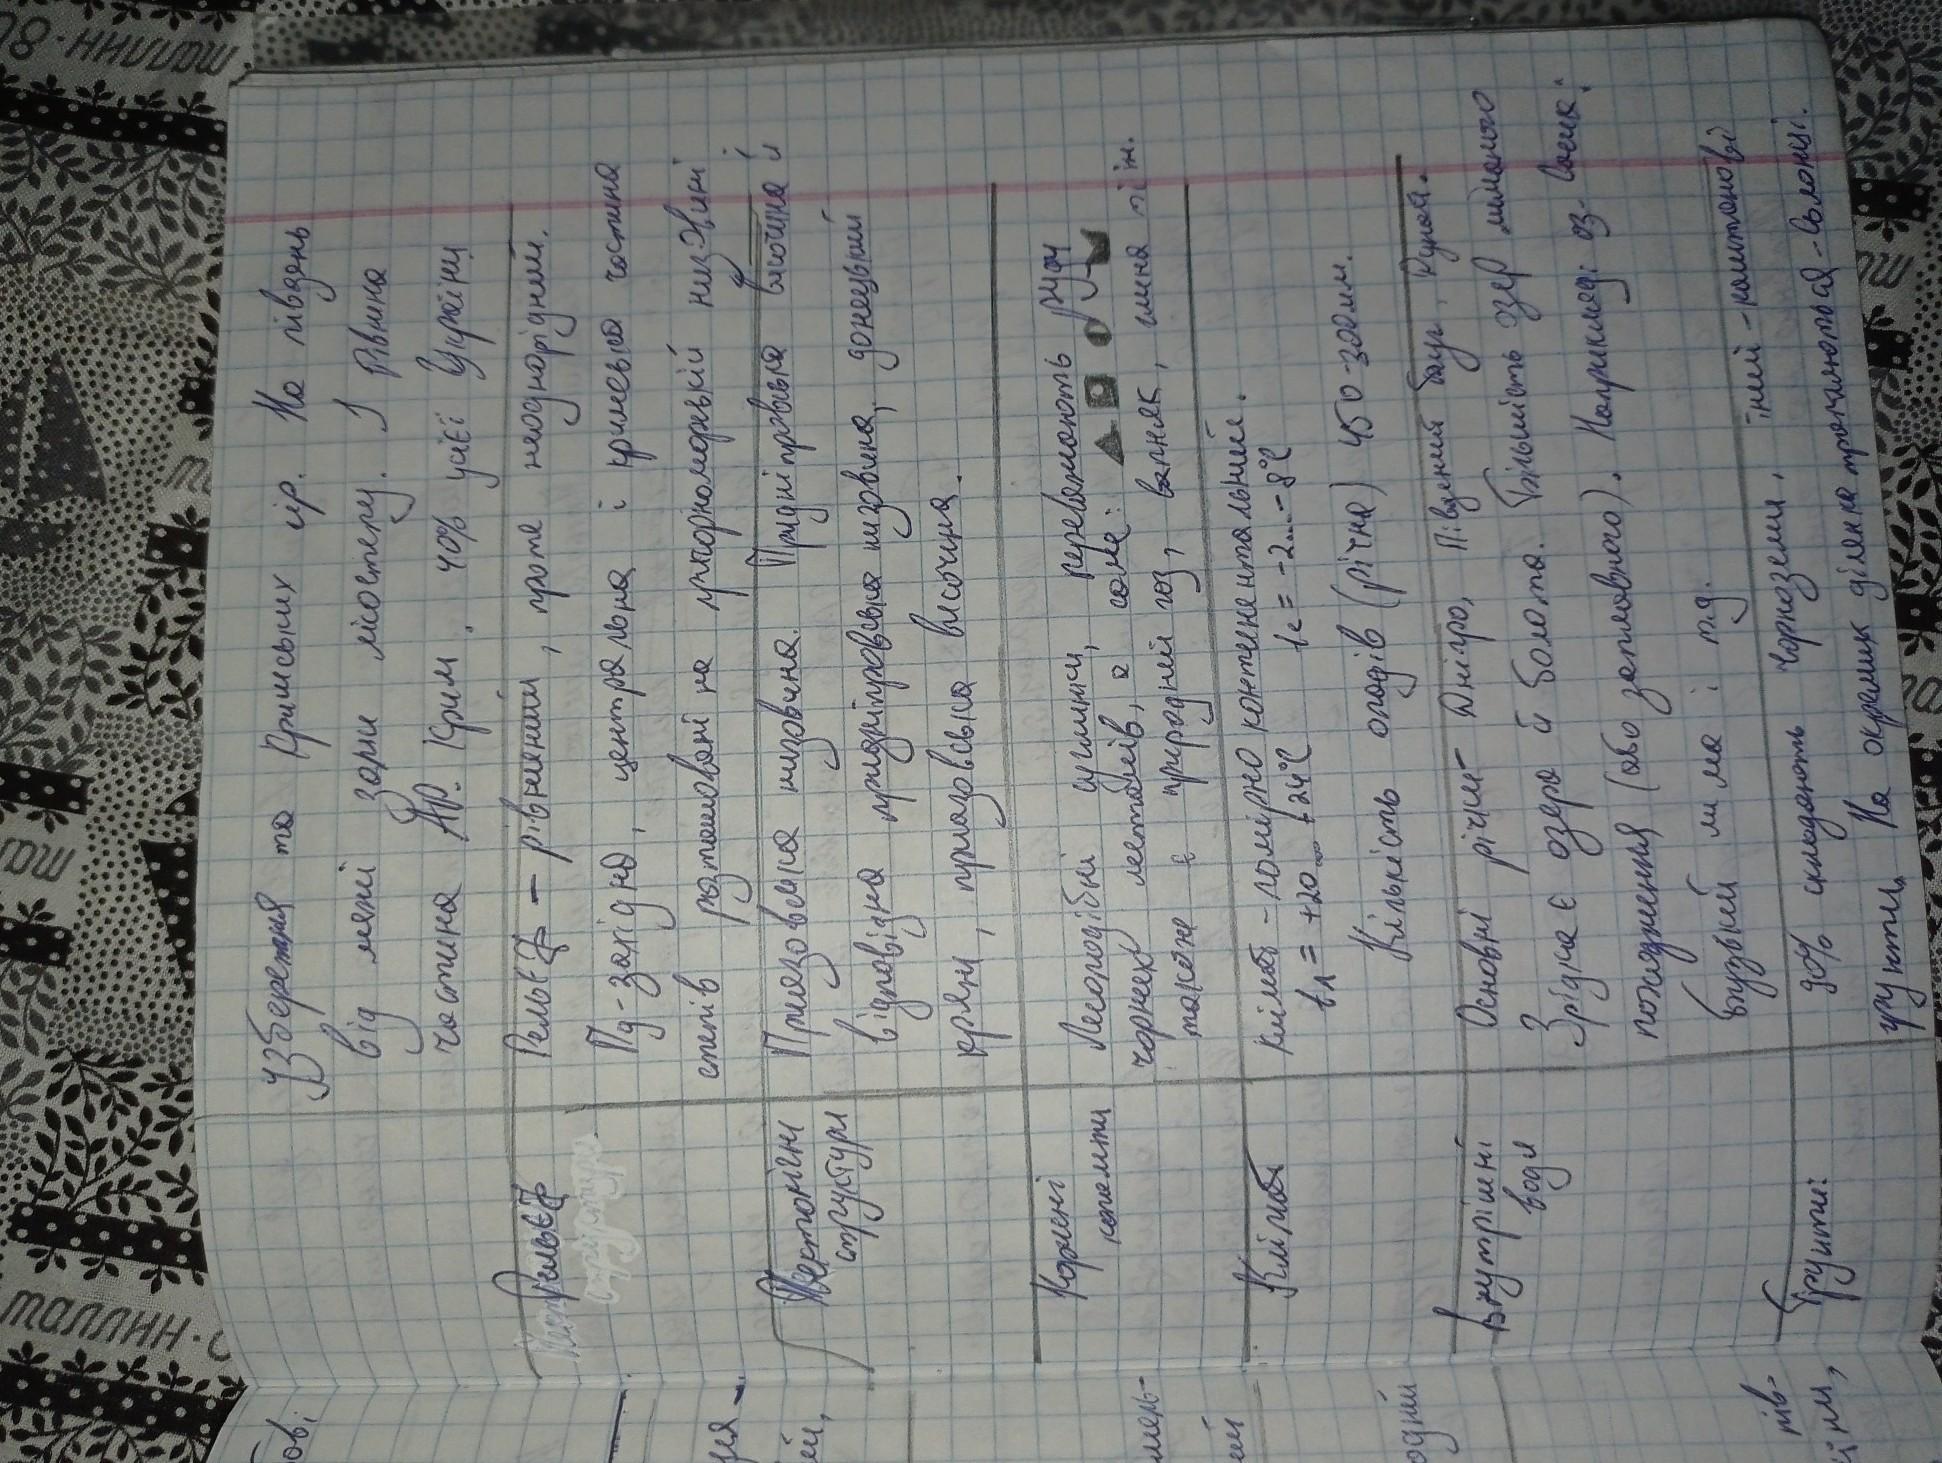 узбережжя та Кримських гір. На південь
від межі зони лісостепу. І Рівнинна
частина АР. Крим. 40% усієї України
Рельєф
Рельєф – рівнинний, проте неоднорідний.
Пд-західна, центральна і кримська частина
степів розташовані на причорноморській низовині
Тектонічні
структури
Приазовська низовина. Придніпровська височина й
відповідна придніпровська низовина, донецький
кряж, приазовська височина.
Корисні
копалини
Лесоподібні суглинки, переважають руди
чорних металів, а саме:
також є природний газ, вапняк, глина
Клімат
Клімат – помірно континентальний.
tл = +20...+24°C tс = -2...-8°C
Кількість опадів (річна) 450-300мм.
Внутрішні
води
Основні річки – Дніпро, Південний Буг, Дунай.
Зрідка є озера й болота. Більшість озер лиманного
походження (або заплавного). Наприклад: оз-
бузький лиман і т.д.
Ґрунти:
90% складають чорноземи, їхній -каштанові
ґрунти. На окремих ділянках трапляються -